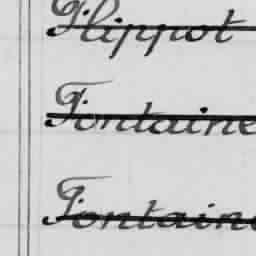 Flippot
Fontaine
Fontaine